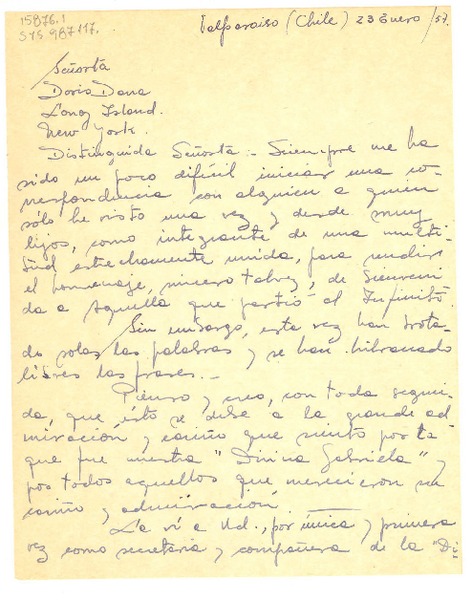 15876.1
SYS 987117.
Valparaíso (Chile) 23 Enero /57.
Señorta
Doris Dana
Long Island.
New York.
Distinguida Señorta:- Siempre me ha
sido un poco difícil iniciar una co-
rrespondencia con alguien a quien
sólo he visto una vez y desde muy
lejos, como integrante de una multi-
tud estrechamente unida, para rendir
el homenaje, nuevo talvez, de bienveni
da a aquella que partió al Infinito.
Sin embargo, esta vez han brota-
do solas las palabras y se han hilvanado
libres las frases.-
Pienso y creo, con toda seguri-
dad, que ésto se debe a la grande ad
miración y cariño que siento por la
que fue nuestra "Divina Gabriela" y
por todos aquellos que merecieron su
cariño y admiración.
La ví a Ud., por única y primera
vez como secretaria y compañera de la "Di